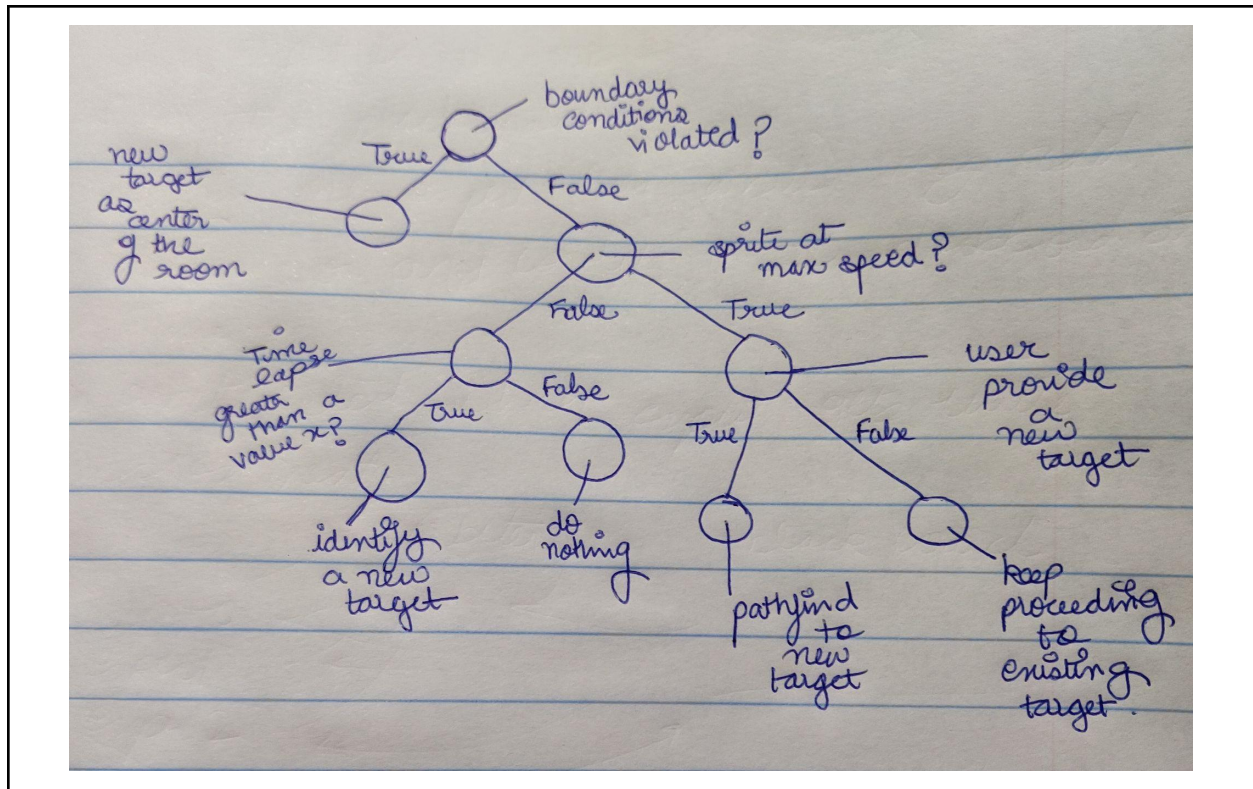 boundary
conditions
violated?
True
False
new
target
as
center
of the
room
sprite at
max speed?
False
True
Time
lapse
greater
than a
value x?
True
False
user
provide
a
new
target
True
False
identify
a new
target
do
nothing
pathfind
to
new
target
keep
proceeding
to
existing
target.